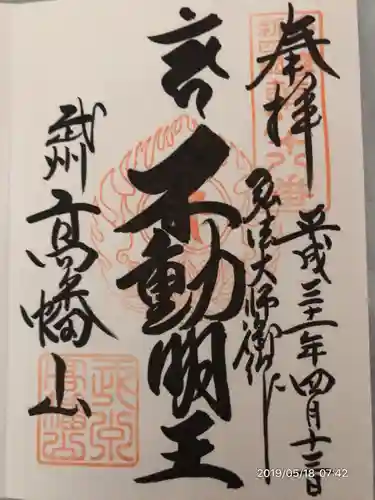 奉拝
平成三十一年四月十二日
弘法大師御
不動明王
武州
高幡山
2019/05/18 07:42